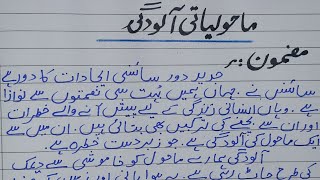 ماحولیاتی آلودگی
مضمون:-
جدید دور سائنسی ایجادات کا دور ہے
سائنس نے جہاں ہمیں بہت سی نعمتوں سے نوازا
ہے۔ وہاں انسانی زندگی کے لیے پیش آنے والے خطرات
اور ان سے بچنے کی ترکیبیں بھی بتائی ہیں۔ ان میں سے
ایک ماحول کی آلودگی ہے۔ جو زبردست خطرہ ہے۔
آلودگی ہمارے ماحول کو خاموشی سے دیمک
کی طرح چاٹ رہی ہے۔ یہ ہوا پانی اور زمین